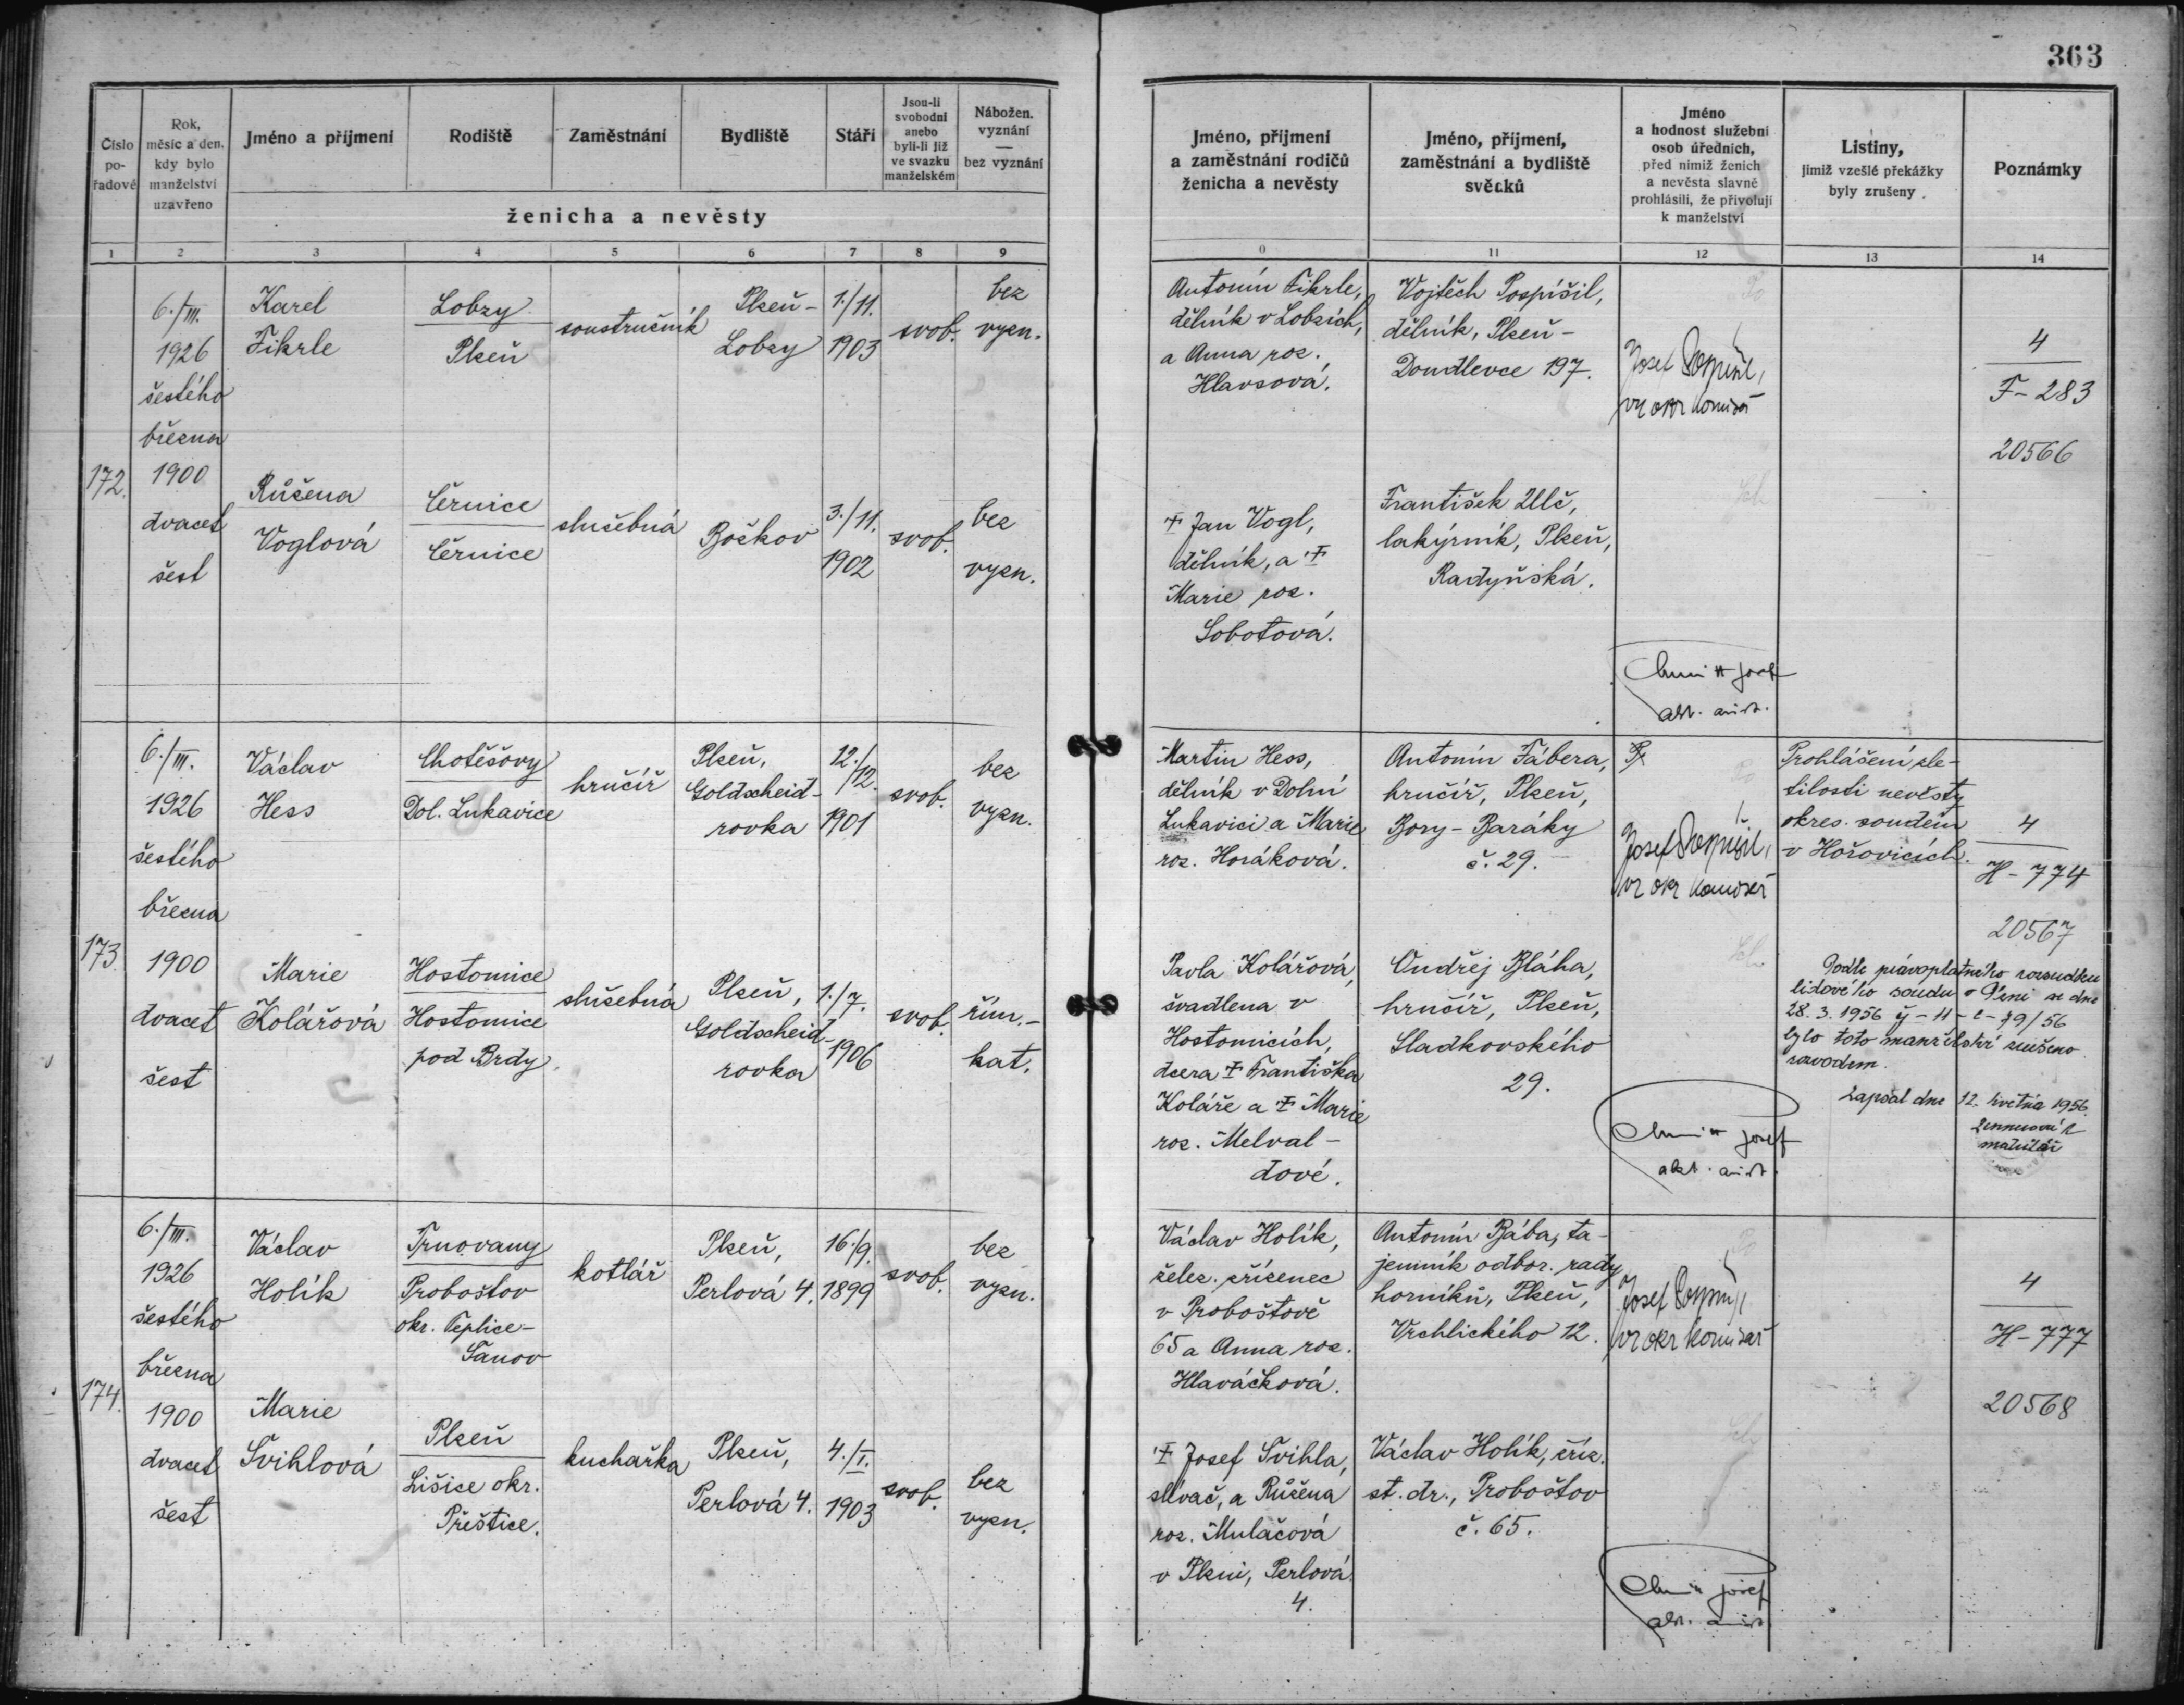 363
Číslo pořadové
Rok, měsíc a den, kdy bylo manželství uzavřeno
Jméno a příjmení
Rodiště
Zaměstnání
Bydliště
Stáří
Jsou-li svobodni anebo byli-li již ve svazku manželském
Nábožen. vyznání — bez vyznání
ženicha a nevěsty
Jméno, příjmení a zaměstnání rodičů ženicha a nevěsty
Jméno, příjmení, zaměstnání a bydliště svědků
Jméno a hodnost služební osob úředních, před nimiž ženich a nevěsta slavně prohlásili, že přivolují k manželství
Listiny, jimiž vzešlé překážky byly zrušeny
Poznámky
1 2 3 4 5 6 7 8 9 0 11 12 13 14
172.
6./III.
1926
šestého
března
1900
dvacet
šest
Karel
Fikrle
Lobzy
Plzeň
soustružník
Plzeň-
Lobzy
1./11.
1903
svob.
bez
vyzn.
Antonín Fikrle,
dělník v Lobzích,
a Anna roz.
Hlavsová.
Vojtěch Pospíšil,
dělník, Plzeň-
Doudlevce 197.
Josef Pospíšil,
vr okr komisař
4
F-283
20566
Růžena
Voglová
Černice
Černice
služebná
Božkov
3./11.
1902
svob.
bez
vyzn.
† Jan Vogl,
dělník, a †
Marie roz.
Sobotová.
František Ulč,
lakýrník, Plzeň,
Radyňská.
Josef
173.
6./III.
1926
šestého
března
1900
dvacet
šest
Václav
Hess
Chotěšovy
Dol. Lukavice
hrnčíř
Plzeň,
Goldscheid-
rovka
12./
12.
1901
svob.
bez
vyzn.
Martin Hess,
dělník v Dolní
Lukavici a Marie
roz. Horáková.
Antonín Fábera,
hrnčíř, Plzeň,
Bory-Baráky
č. 29.
Josef Pospíšil,
vr okr komisař
Prohlášení zle-
tilosti nevěsty
okres. soudem
v Hořovicích.
4
H-774
20567
Marie
Kolářová
Hostomice
Hostomice
pod Brdy
služebná
Plzeň,
Goldscheid-
rovka
1./7.
1906
svob.
řím.-
kat.
Pavla Kolářová,
švadlena v
Hostomicích,
dcera † Františka
Koláře a † Marie
roz. Melval-
dové.
Ondřej Bláha,
hrnčíř, Plzeň,
Sladkovského
29.
Josef
Podle právoplatného rozsudku
lidového soudu v Plzni ze dne
28. 3. 1956
bylo toto manželství zrušeno
rozvodem.
Zapsal dne 12. května 1956.
174.
6./III.
1926
šestého
března
1900
dvacet
šest
Václav
Holík
Trnovany
Proboštov
okr. Teplice-
Šanov
kotlář
Plzeň,
Perlová 4.
16./9.
1899
svob.
bez
vyzn.
Václav Holík,
želez. zřízenec
v Proboštově
65 a Anna roz.
Hlaváčková.
Antonín Bába, ta-
jemník odbor. rady
horníků, Plzeň,
Vrchlického 12.
Josef Pospíšil
vr okr komisař
4
H-777
20568
Marie
Švihlová
Plzeň
Lišice okr.
Přeštice.
kuchařka
Plzeň,
Perlová 4.
4./I.
1903
svob.
bez
vyzn.
† Josef Švihla,
slévač, a Růžena
roz. Muláčová
v Plzni, Perlová
4.
Václav Holík, zříz.
st. dr., Proboštov
č. 65.
Josef